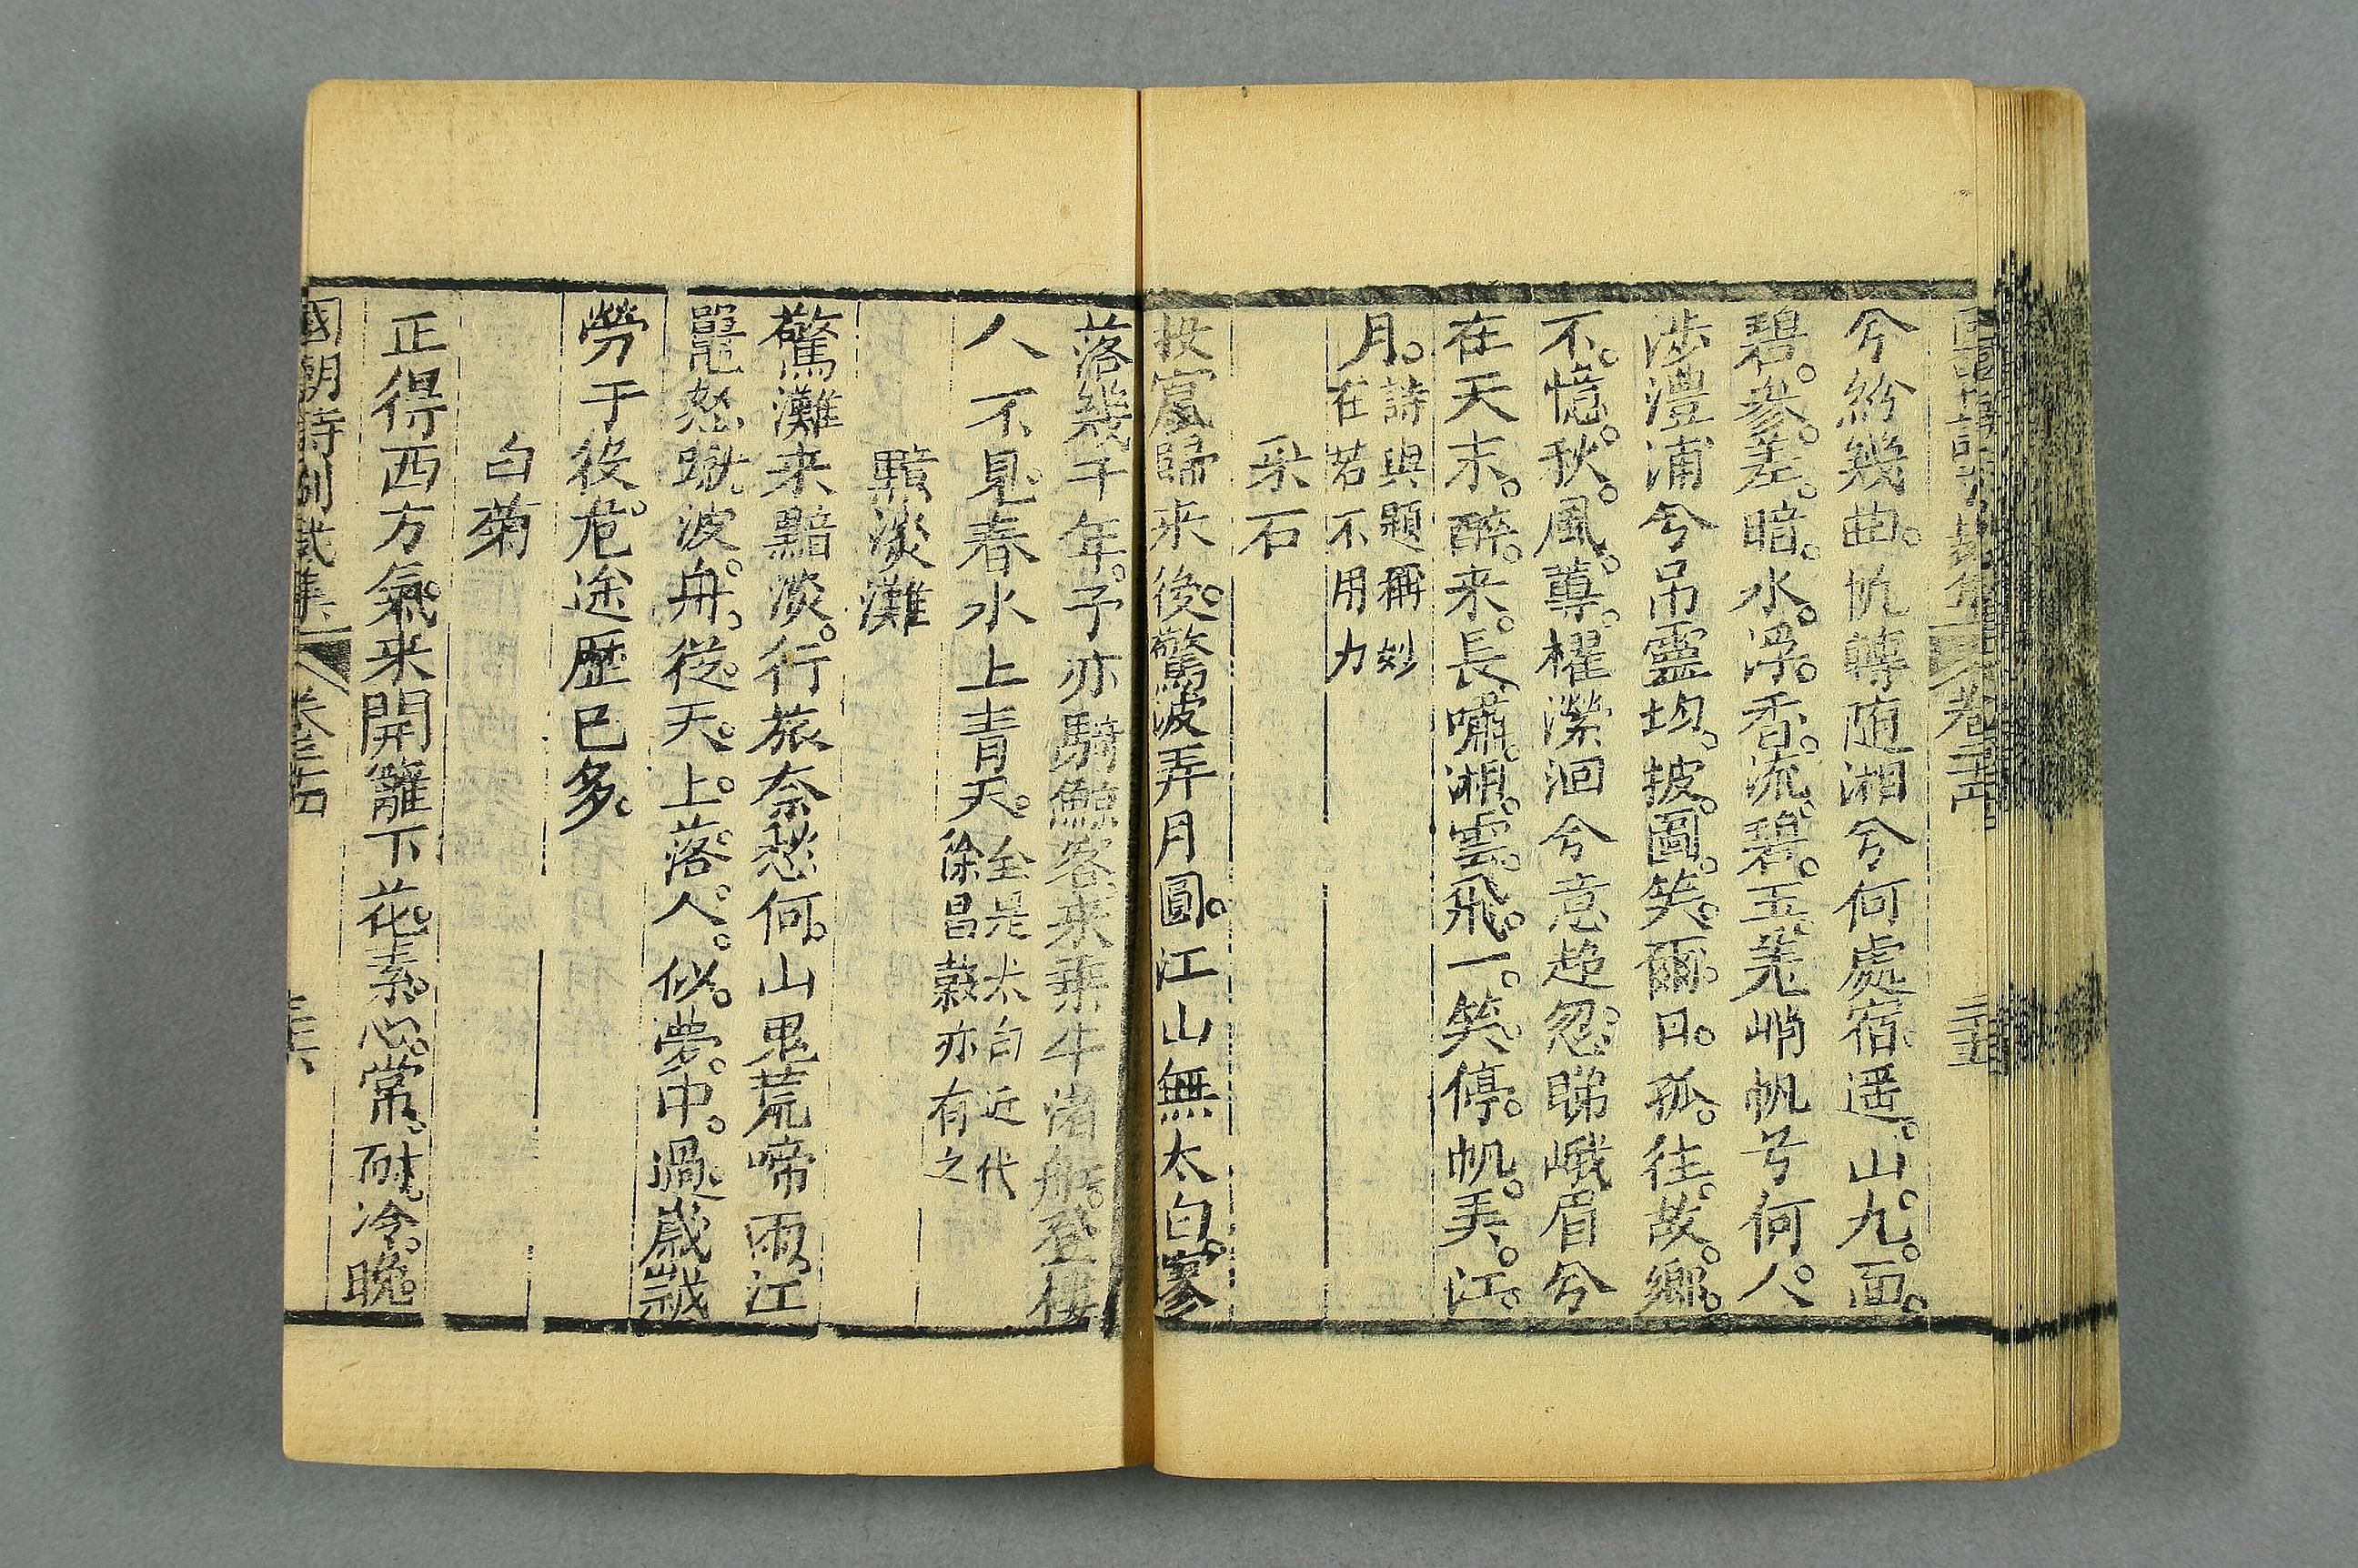 兮紛幾曲。帆轉随湘兮何處宿遥。山。九。面。
碧。參。差。暗。水。浮。香。流。碧。玉。羌峭帆兮何。人。
涉澧浦兮吊靈均。披。圖。笑。爾。曰。孤。往。故。鄉。
不。憶。秋。風。蓴。櫂濚洄兮意趣忽睇峨眉兮
在天末。醉。来。長嘯。湘。雲。飛。一。笑。停。帆。弄。江。
月。詩與題稱妙
在若不用力
采石
投宸歸来後。驚波弄月圓。江山無太白。寥
落幾千年。予亦騎鯨客。来乘牛渚船。登樓
人不見。春水上青天。全是太白近代
徐昌穀亦有之
黯淡灘
驚灘来黯淡。行旅奈愁何。山鬼荒啼雨。江
鼉怒蹴波。舟。從。天。上。落。人。似。夢。中。過。歲歲
勞于役。危途歷已多。
白菊
正得西方氣。来開籬下花。素。心。常。耐。冷。晚。
國朝詩別裁集 卷三十五 三十六